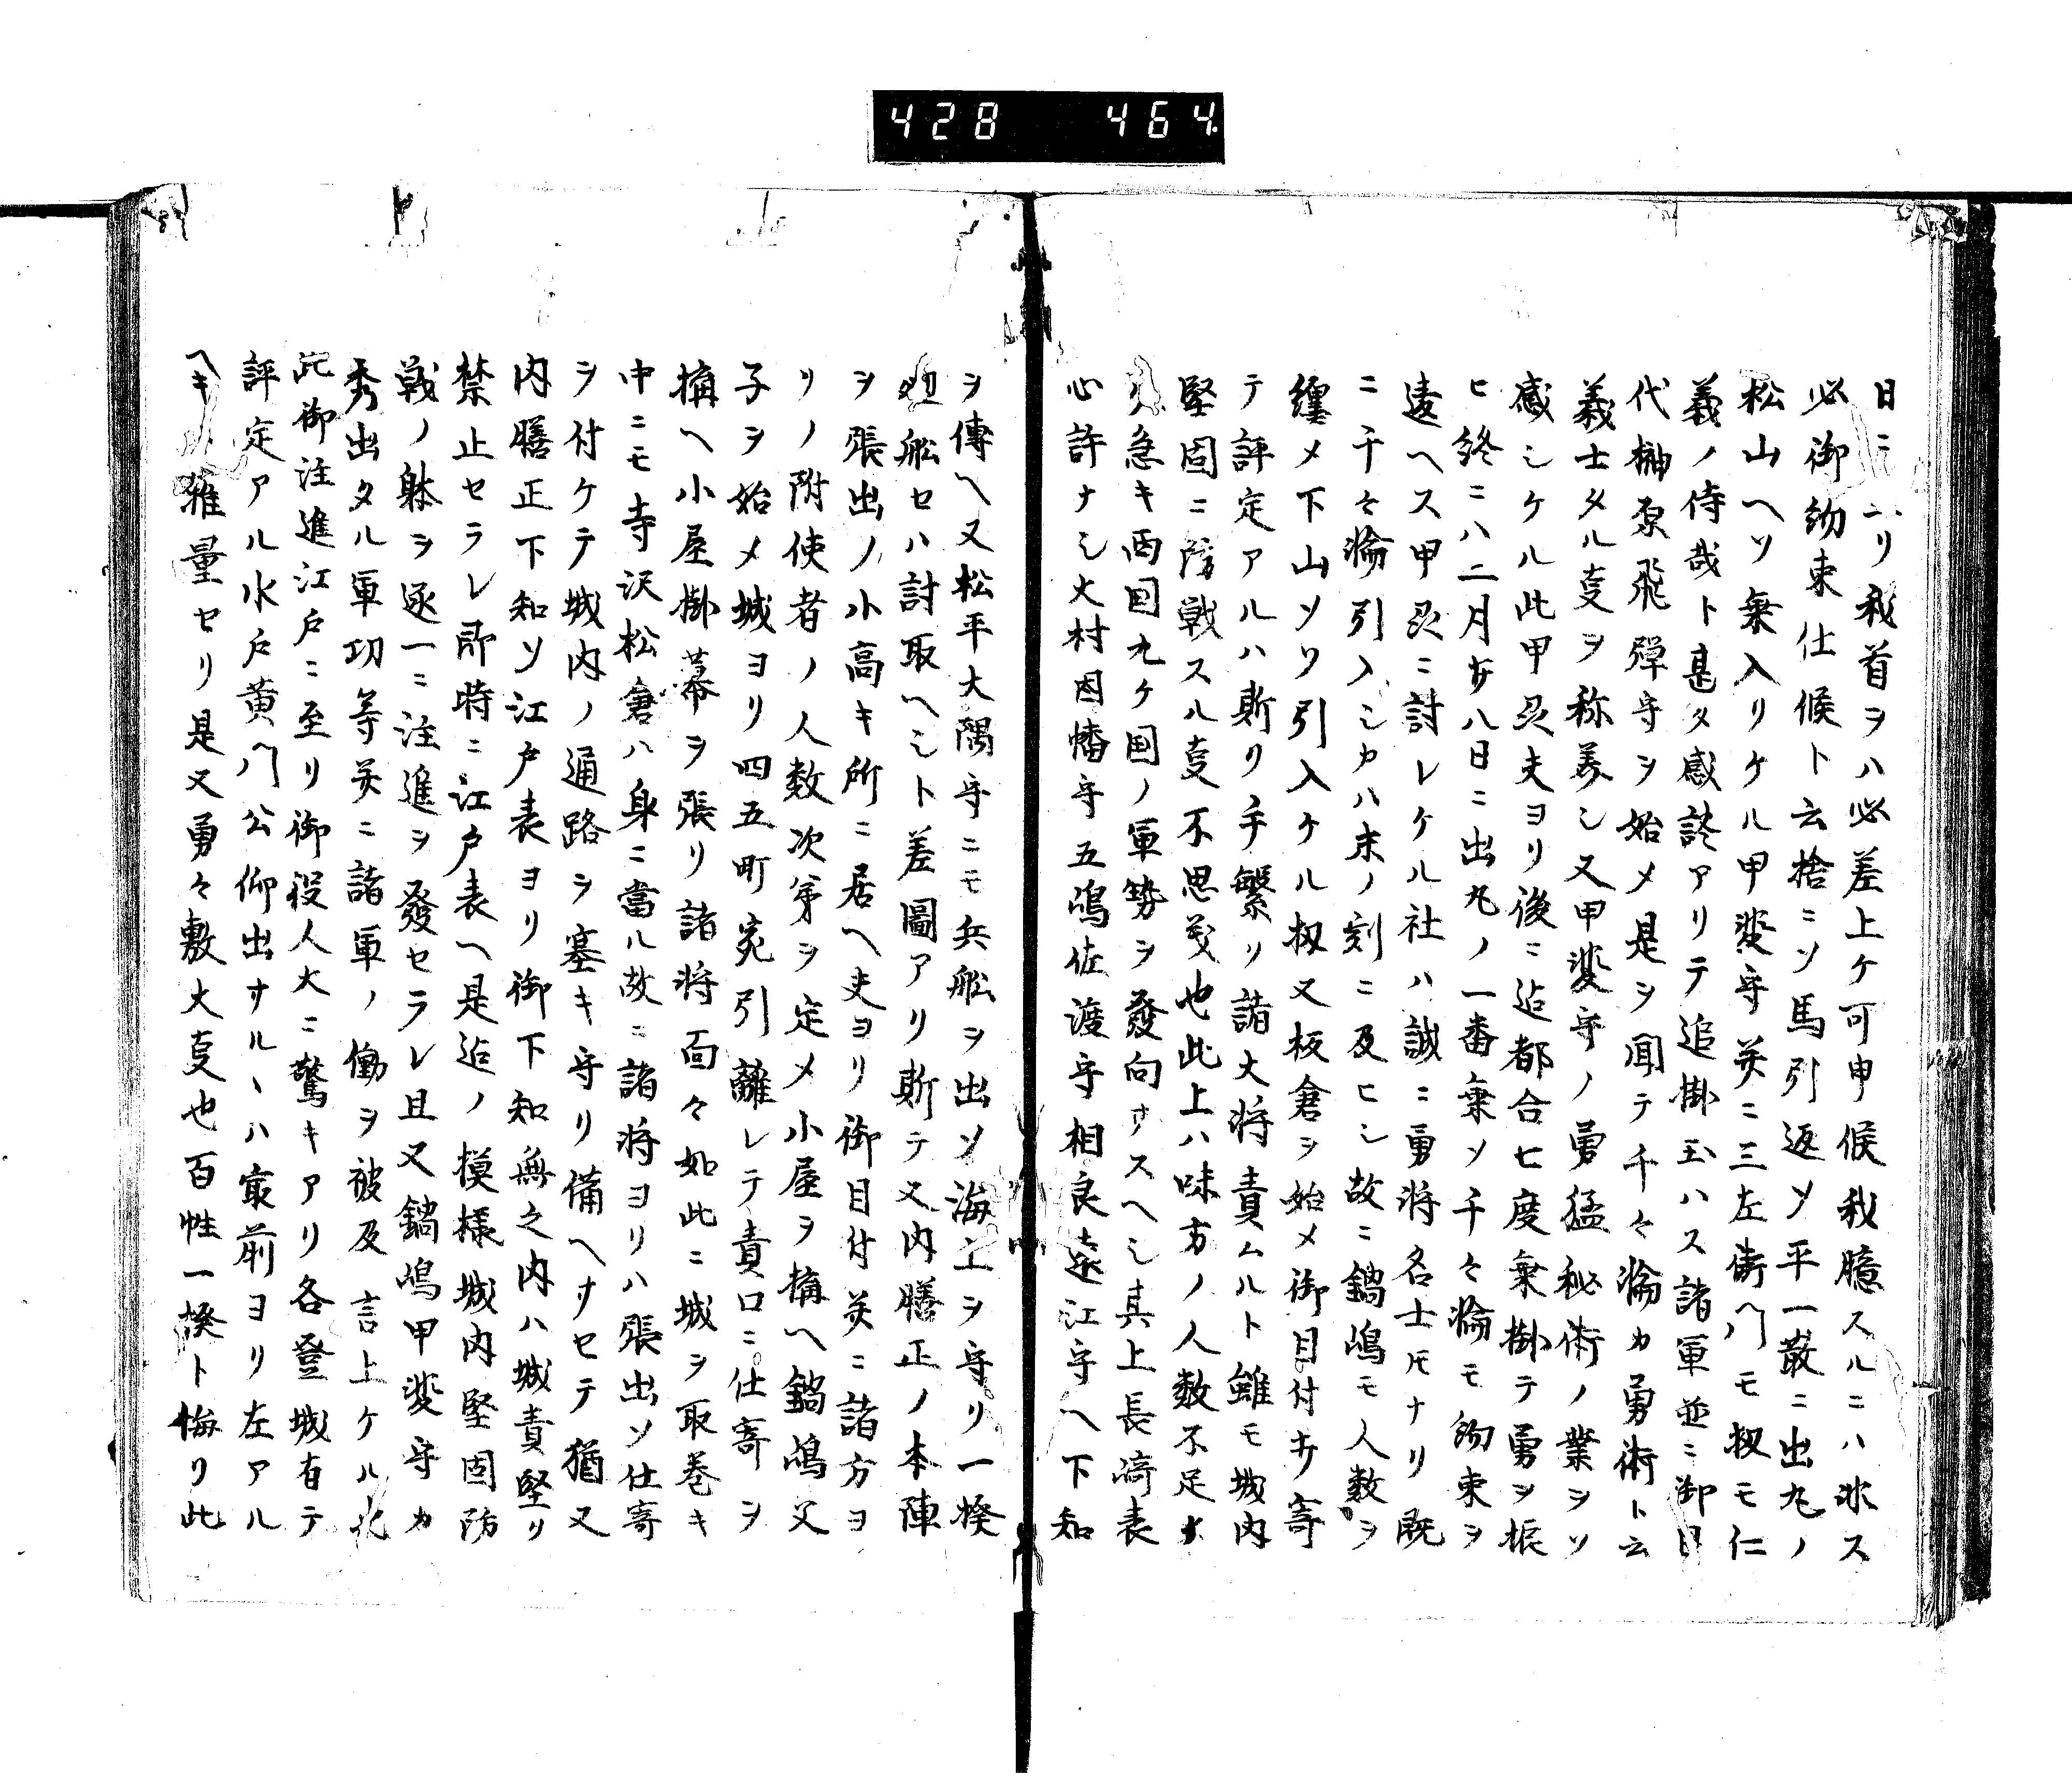 428 464
日ニ二リ我首ヲハ必差上ケ可申候我臆スルニハ非ス
必御約束仕候ト云捨ニソ馬引返ソ平一散ニ出丸ノ
松山ヘソ乗入リケル甲斐守并ニ三左衛門モ扨モ仁
義ノ侍哉ト甚タ感詫アリテ追掛玉ハス諸軍並ニ御目
代榊原飛彈守ヲ始メ是ヲ聞テ千々淪カ勇術ト云
義士タル叓ヲ称美シ又甲斐守ノ勇猛秘術ノ業ヲソ
感シケル此甲必夫ヨリ後ニ迠都合七度乗掛テ勇ヲ振
ヒ終ニハ二月廿八日ニ出丸ノ一番乗ソ千々淪モ約束ヲ
違ヘス甲必ニ討レケル社ハ誠ニ勇将名士𪜈ナリ既
ニ千々淪引入シカハ未ノ刻ニ及ヒシ故ニ鍋嶋モ人数ヲ
纏メ下山ソソ引入ケル扨又板倉ヲ始メ御目付キ寄
テ評定アルハ斯リ手繁リ諸大将責ムルト雖モ城内
堅固ニ防戦スル叓不思義也此上ハ味方ノ人数不足ナ
リ急キ西国九ケ国ノ軍勢ヲ發向ナスヘシ其上長崎表
心許ナシ大村因幡守五嶋佐渡守相良遠江守ヘ下知
ヲ傳ヘ又松平大隅守ニモ兵舩ヲ出ソ海上ヲ守リ一揆
廻舩セハ討取ヘシト差圖アリ斯テ又内膳正ノ本陣
ヲ張出ノ小高キ所ニ居ヘ夫ヨリ御目付并ニ諸方ヨ
リノ附使者ノ人数次第ヲ定メ小屋ヲ搆ヘ鍋嶋父
子ヲ始メ城ヨリ四五町宛引離レテ責口ニ仕寄ヲ
搆ヘ小屋掛幕ヲ張リ諸将面々如此ニ城ヲ取巻キ
中ニモ寺沢松倉ハ身ニ當ル故ニ諸将ヨリハ張出ソ仕寄
ヲ付ケテ城内ノ通路ヲ塞キ守リ備ヘナセテ猶又
内膳正下知ソ江戸表ヨリ御下知無之内ハ城責堅リ
禁止セラレ即時ニ江戸表ヘ是迠ノ模様城内堅固防
戦ノ躰ヲ逐一ニ注進ヲ發セラレ且又鍋嶋甲斐守カ
秀出タル軍功等并ニ諸軍ノ働ヲ被及言上ケル
此御注進江戸ニ至リ御役人大ニ驚キアリ各登城有テ
評定アル水戸黄門公仰出ナル丶ハ最前ヨリ左アル
ヘキ 推量セリ是又勇々敷大叓也百姓一揆ト悔リ此